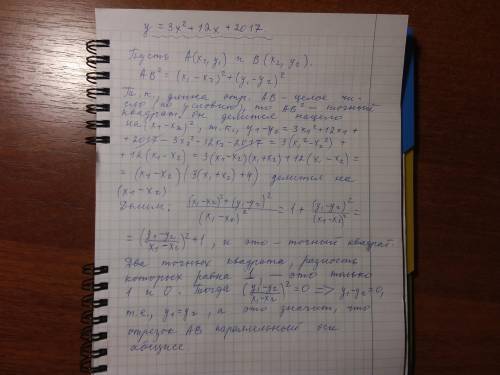 y = 3x² + 12x + 2017
Пусть A(x₁, y₁) и B(x₂, y₂).
AB² = (x₁-x₂)² + (y₁-y₂)²
Т.к. длина отр. AB - целое чи-
сло (по условию), то AB² - точный
квадрат. Он делится нацело
на (x₁-x₂)², т.к. y₁-y₂ = 3x₁²+12x₁+
+2017-3x₂²-12x₂-2017 = 3(x₁²-x₂²)+
+12(x₁-x₂) = 3(x₁-x₂)(x₁+x₂)+12(x₁-x₂)=
= (x₁-x₂)(3(x₁+x₂)+4) делится на
(x₁-x₂)
Делим: ((x₁-x₂)²+(y₁-y₂)²)/(x₁-x₂)² = 1 + (y₁-y₂)²/(x₁-x₂)² =
= ((y₁-y₂)/(x₁-x₂))² + 1, и это - точный квадрат.
Два точных квадрата, разность
которых равна 1, - это только
1 и 0. Тогда ((y₁-y₂)/(x₁-x₂))² = 0 => y₁-y₂=0,
т.к. y₁=y₂, а это значит, что
отрезок AB параллельный оси
абсцисс